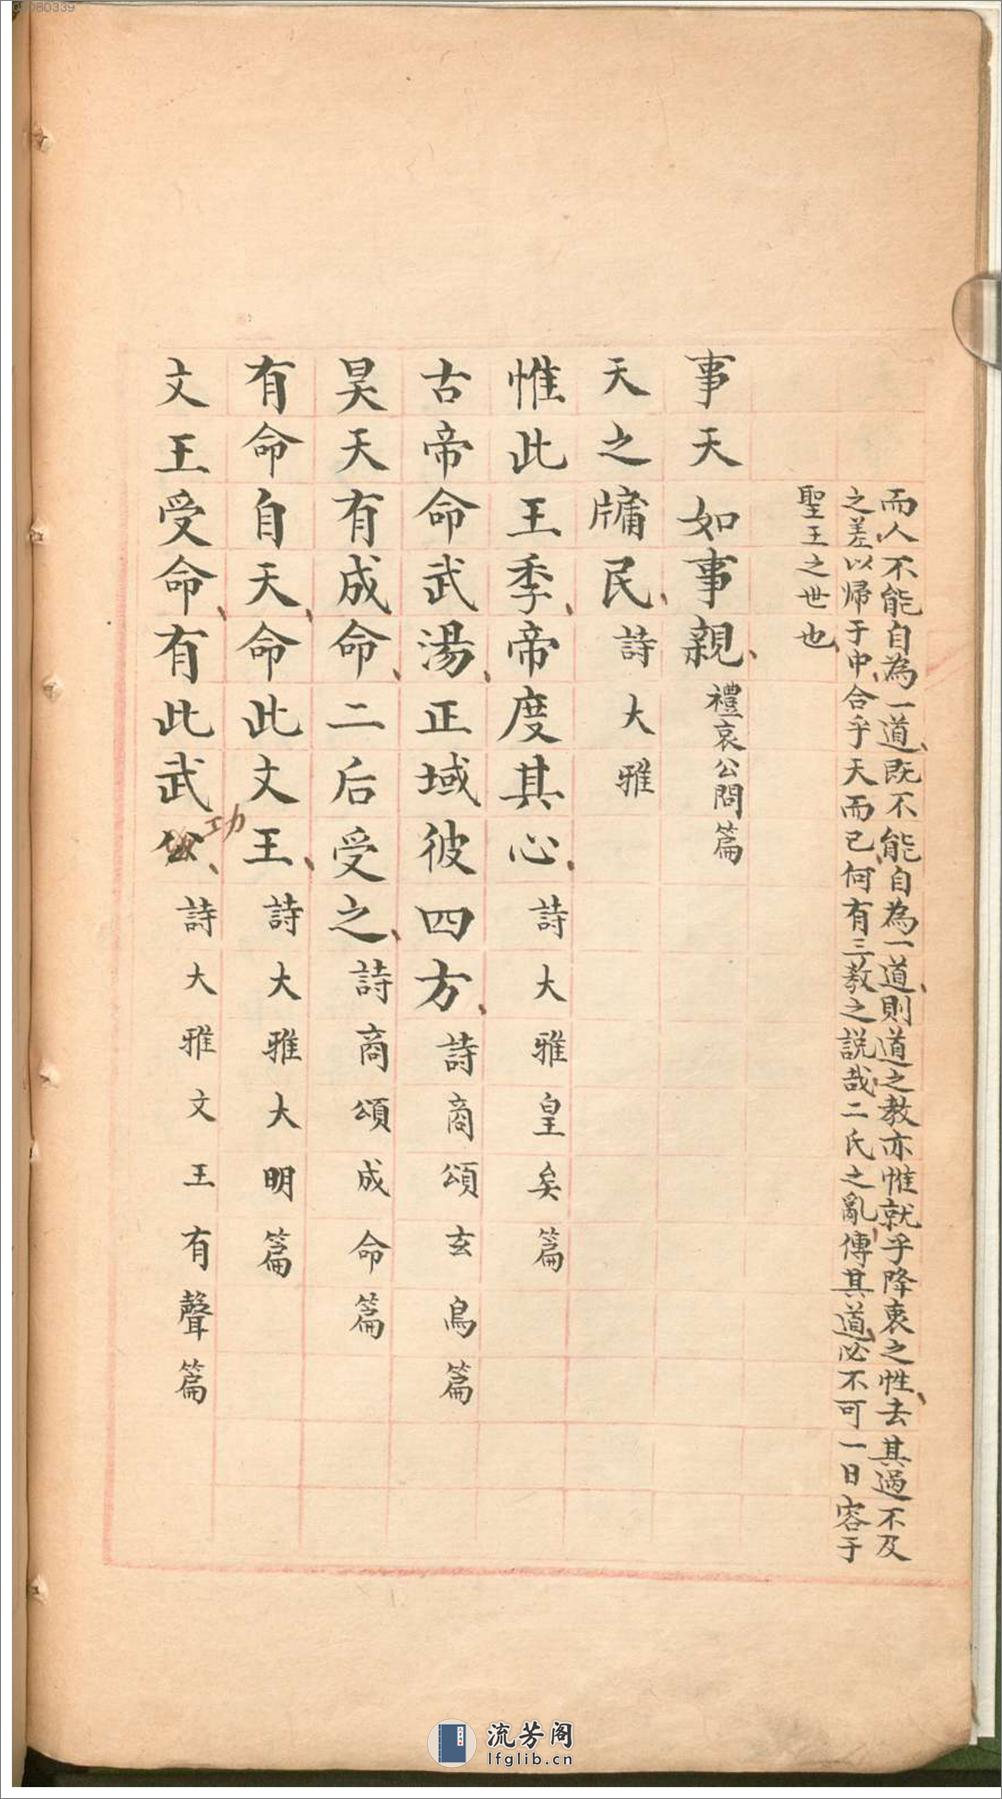 而人不能自為一道既不能自為一道則道之教亦惟就乎降衷之性去其過不及
之差以歸于中合乎天而已何有三教之説哉二氏之亂傳其道必不可一日容于
聖王之世也
事天如事親禮哀公問篇
天之牖民詩大雅
惟此王季帝度其心詩大雅皇矣篇
古帝命武湯正域彼四方詩商頌玄鳥篇
昊天有成命二后受之詩商頌成命篇
有命自天命此文王詩大雅大明篇
文王受命有此武公功詩大雅文王有聲篇
流芳阁
lfglib.cn